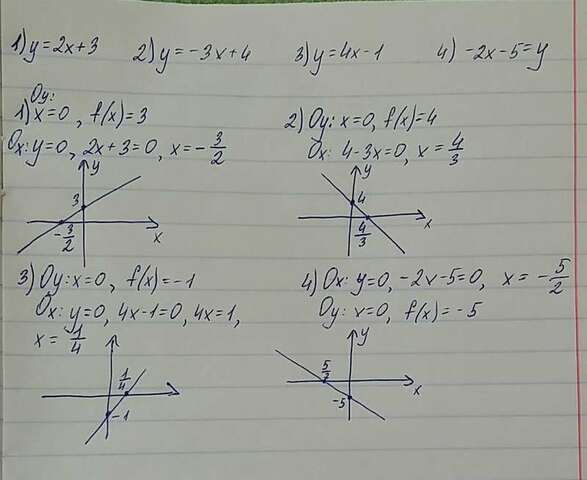 1) y=2x+3 2) y=-3x+4 3) y=4x-1 4) -2x-5=y
Oy:
1) x=0, f(x)=3
Ox: y=0, 2x+3=0, x=-3/2
y
3
-3/2
x
2) Oy: x=0, f(x)=4
Ox: 4-3x=0, x=4/3
y
4
4/3
x
3) Oy: x=0, f(x)=-1
Ox: y=0, 4x-1=0, 4x=1,
x=1/4
1/4
-1
4) Ox: y=0, -2x-5=0, x=-5/2
Oy: x=0, f(x)=-5
y
5/2
-5
x